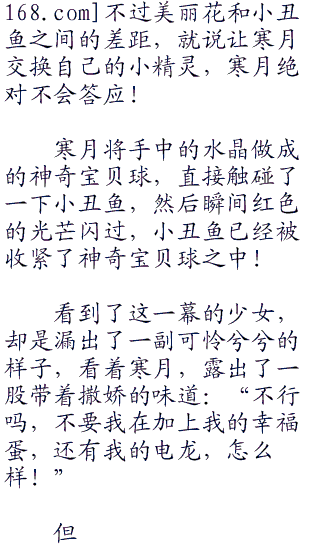 168.com]不过美丽花和小丑
鱼之间的差距，就说让寒月
交换自己的小精灵，寒月绝
对不会答应！
寒月将手中的水晶做成
的神奇宝贝球，直接触碰了
一下小丑鱼，然后瞬间红色
的光芒闪过，小丑鱼已经被
收紧了神奇宝贝球之中！
看到了这一幕的少女，
却是漏出了一副可怜兮兮的
样子，看着寒月，露出了一
股带着撒娇的味道：“不行
吗，不要我在加上我的幸福
蛋，还有我的电龙，怎么
样！”
但